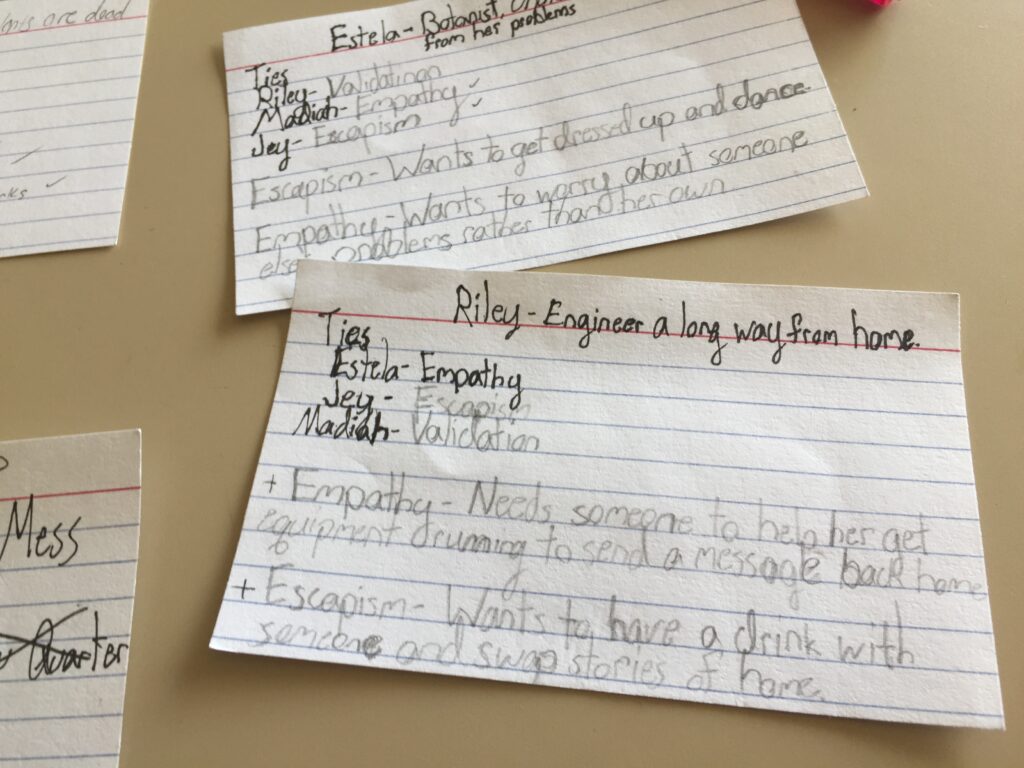 are dead
nks ✓
Estela - Botanist,
from her problems
Ties
Riley - Validatinon
Madiah - Empathy ✓
Jey - Escapism ✓
Escapism - Wants to get dressed up and dance.
Empathy - Wants to worry about someone
else problems rather than her own
Riley - Engineer a long way from home.
Ties
Estela - Empathy
Jey - Escapism
Madiah - Validation
+ Empathy - Needs someone to help her get
equipment drunning to send a message back home
+ Escapism - Wants to have a drink with
someone and swap stories of home.
Mess
Quarter